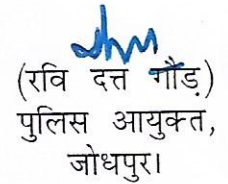 (रवि दत्त गौड़)
पुलिस आयुक्त,
जोधपुर।